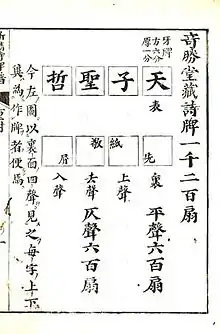 竒勝堂藏詩牌一千二百扇
牙牌
方六分
厚一分
天 表
先 裏 平聲六百扇
子
紙 上聲
聖
敬 去聲 仄聲六百扇
哲
屑 入聲
今左圖以裏面四聲見之每字上下
為作牌者便焉